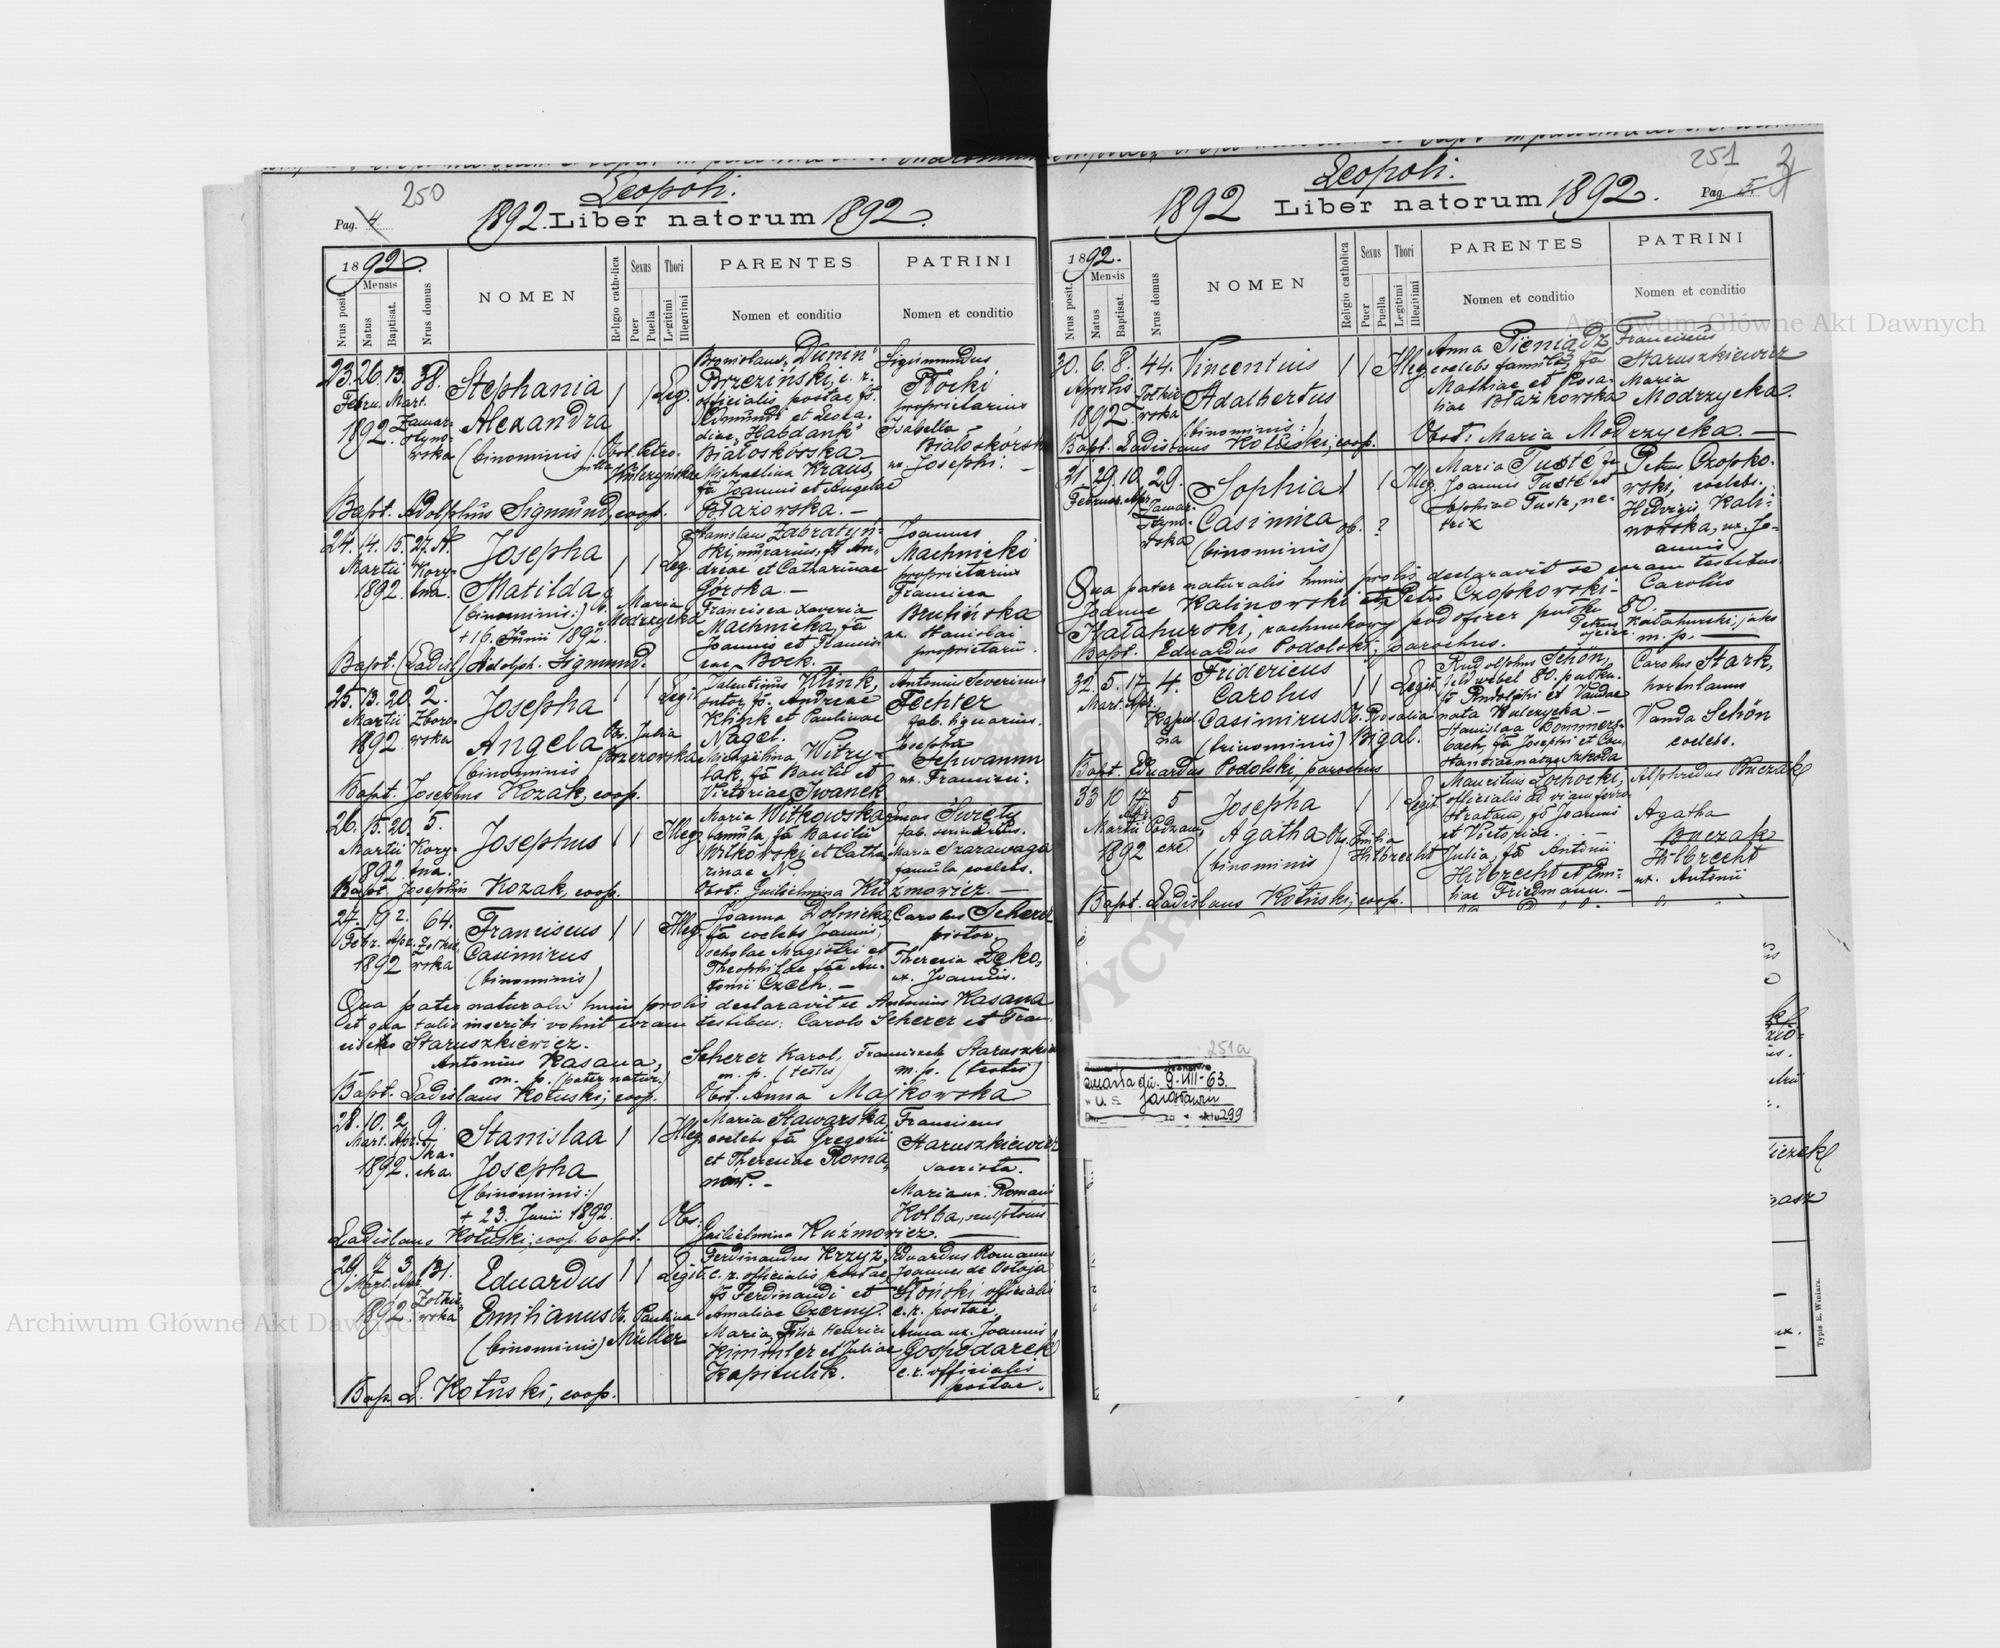 250
Leopoli.
Pag. 4.
1892. Liber natorum 1892.
1892.
Nrus posit.
Mensis
Natus
Baptisat.
Nrus domus
NOMEN
Religio catholica
Sexus
Puer
Puella
Thori
Legitimi
Illegitimi
PARENTES
Nomen et conditio
PATRINI
Nomen et conditio
23. 26. 13. 38.
Febru. Mart.
1892.
Stephania
Alexandra
(binominis
Leg.
Bronislaus "Dunin"
Brzeziński, c. r.
officialis postae, fs.
Edmundi et Leoca-
diae "Habdank"
Białoskórska
Michaelina Kraus,
fa Joannis et Angelae
Błażowska. —
Sigismundus
Płocki
proprietarius
Isabella
Białoskórska
ux. Josephi. —
Bapt. Adolphus Sigmund, coop.
24. 14. 15. 27. A.
Martii Kory-
1892. tna.
Josepha
Matilda
(binominis:)
+ 16. Junii 1892.
Maria
Modrzycka
Leg.
Stanislaus Zabratyń-
ski, murarius, fs An-
dreae et Catharinae
Górska. —
Francisca Xaveria
Machnicka, fa
Joannis et Francis-
cae Bock. —
Joannes
Machnicki
proprietarius
Francisca
ux. Stanislai
proprietarii.
Bapt. (Ladisl) Adolph. Sigmund.
25. 13. 20. 2.
Martii Zboro-
1892. wska
Josepha
Angela
(binominis
Ob. Julia
Brzezowska
Legit
Valentinus Klink,
sutor fs. Andreae
Klink et Paulinae
Nagel.
Michaëlina Witry-
lak, fa Basilii et
Victoriae Iwanek
Antonius Severinus
Fechter
fab. lignarius.
Josepha
Schwann
ux. Francisci.
Bapt. Josephus Kozak, coop.
26. 15. 20. 5.
Martii Kory-
1892. tna.
Josephus
Illeg.
Maria Witkowska
famula, fa Basilii
Witkowski et Catha-
rinae N.
Święty
Maria Szarawaga
famula coelebs.
Bapt. Josephus Kozak, coop.
Obst: Guilielmina Kuźmowicz. —
27. 19. 2. 64.
Febr. Apr. Żółkie-
1892 wska
Franciscus
Casimirus
(binominis)
Illeg.
Joanna Dolnicka,
fa coelebs Joannis,
scholae Magistri et
Theophilae fae An-
tonii Czech. —
Carolus Scherer
pistor.
Theresia Lęko,
ux. Joannis.
Qua pater naturalis huius prolis declaravit se Antonius Kasana
et qua talis inscribi voluit coram testibus: Carolo Scherer et Fran-
cisco Staruszkiewicz.
Antonius Kasana,
m. p. (pater natur.)
Scherer Karol,
m. p. (testis)
Franciszek Staruszkiewicz
m. p. (testis)
Bapt. Ladislaus Kotuski, coop.
Obst. Anna Majkowska
28. 10. 2. 9.
Mart. Apr.
1892.
Stanislaa
Josepha
(binominis:)
+ 23. Junii 1892.
Illeg.
Maria Stawarska,
coelebs fa Gregorii
et Theresiae Roma-
nów. —
Franciscus
Staruszkiewicz
sacrista.
Maria ux. Romani
Kołba, sculptoris
Ladislaus Kotuski, coop. bapt.
Obs: Guilielmina Kuźmowicz. —
29. 7. 3. 131.
Mart. Apr. Żółkie-
1892. wska
Eduardus
Emilianus
(binominis)
Ob. Paulina
Müller
Legit.
Ferdinandus Krzyż,
c. r. officialis postae,
fs Ferdinandi et
Amaliae Czerny.
Maria, filia Henrici
Kimmler et Juliae
Kapitulik.
Eduardus Romanus
Joannes de Ostoja
Słoński officialis
c. r. postae.
Anna ux. Joannis
Gospodarek
c. r. officialis
postae.
Bap. L. Kotuski, coop.
251
Leopoli.
1892 Liber natorum 1892.
Pag. 5.
1892.
Nrus posit.
Mensis
Natus
Baptisat.
Nrus domus
NOMEN
Religio catholica
Sexus
Puer
Puella
Thori
Legitimi
Illegitimi
PARENTES
Nomen et conditio
PATRINI
Nomen et conditio
30. 6. 8. 44.
Aprilis Żółkie-
1892 wska
Vincentius
Adalbertus
(binominis:)
Illeg.
Anna Pieniądz
coelebs famula, fa
Mathiae et Rosa-
liae Błażkowska
Franciscus
Staruszkiewicz
Maria
Modrzycka.
Bapt. Ladislaus Kotuski, coop.
Obst: Maria Modrzycka. —
31. 29. 10. 29.
Februar. Apr.
Sophia
Casimira
(binominis)
ob. ?
Illeg.
Maria Tuste, fa
Joannis Tuste et
Sophiae Tuste, ne-
trix
Petrus Czopko-
wski, coelebs.
Hedvigis Kali-
nowska, ux. Jo-
annis
Qua pater naturalis huius prolis declaravit se coram testibus
Joanne Kalinowski et Petro Czopkowski — Carolus
Kałahurski, rachunkowy podoficer pułku 80.
Bapt. Eduardus Podolski, parochus.
32. 5. 17. 4.
Mart. Apr.
Fridericus
Carolus
Casimirus
(trinominis)
Ob. Rosalia
Bigal.
Legit
Rudolphus Schön,
feldwebel 80. pułku.
fs Rudolphi et Vandae
nata Kulczycka —
Stanislaa Bommers-
bach, fa Josephi et Con-
stantiae nata Szkoda
Carolus Stark,
Vanda Schön
coelebs.
Bapt. Eduardus Podolski, parochus
33 10 17 5
Martii Podzam-
1892 cze
Josepha
Agatha
(binominis)
Ob. Emilia
Hilbrecht
Legit.
Mauritius Łochocki,
officialis ad viam ferra-
stratam, fs Joannis
et Victoriae.
Julia, fa Antonii
Hilbrecht et Emi-
liae Friedmann. —
Alphredus Buczak
Agatha
Buczak
Hilbrecht
ux. Antonii
Bapt. Ladislaus Kotuski, coop.
251a
9.VIII-63.
299
Typis E. Winiarz.
Archiwum Główne Akt Dawnych
Archiwum Główne Akt Dawnych